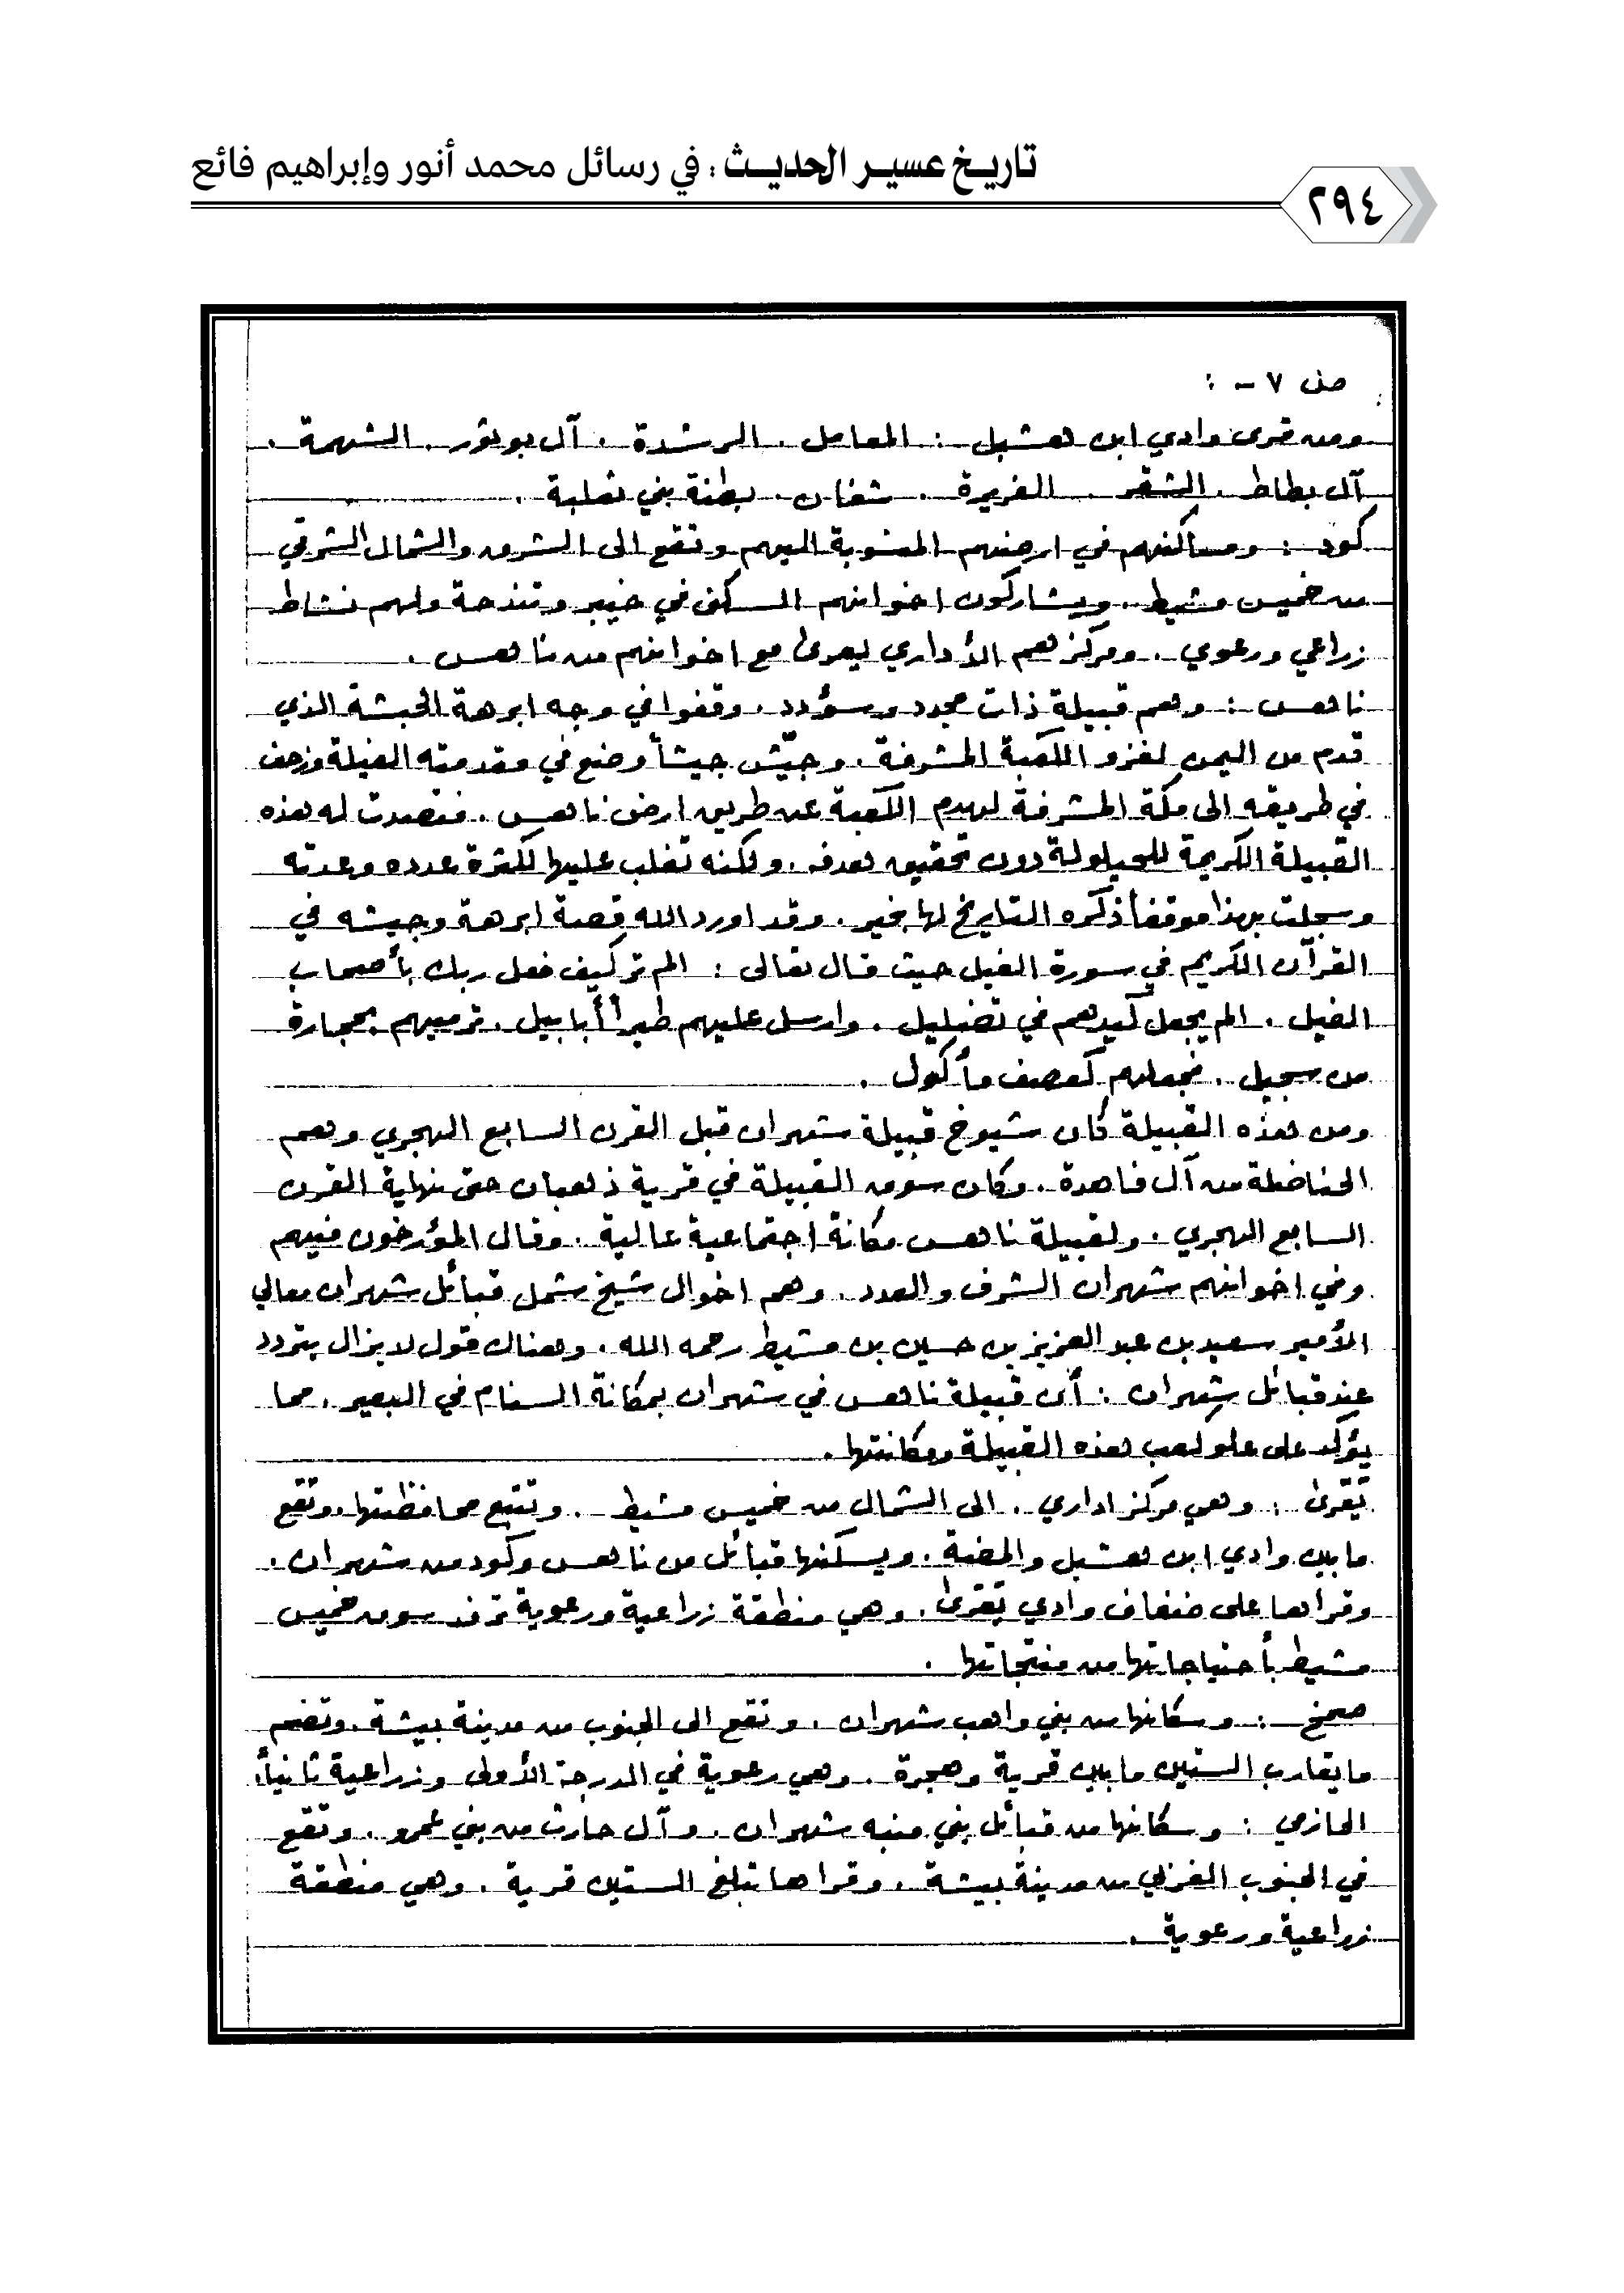 تاريخ عسير الحديث : في رسائل محمد أنور وإبراهيم فائع
٢٩٤
ص ٧ - :
ومن قرى وادي ابن هشبل : المعامل . الرشدة . آل بوثور . الشهمة .
آل بطاط . الشقر . الغريرة . شغان . بطنة بني ثعلبة .
كود : ومساكنهم في ارضهم المنسوبة اليهم وتقع الى الشرق والشمال الشرقي
من خميس مشيط . ويشاركون اخوانهم السكنى في خيبر وتندحة ولهم نشاط
زراعي ورعوي . ومركزهم الأداري يعرى مع اخوانهم من ناهس .
ناهس : وهم قبيلة ذات مجد وسؤدد . وقفوا في وجه ابرهة الحبشة الذي
قدم من اليمن لغزو الكعبة المشرفة . وجيّش جيشاً وضع في مقدمته الفيلة وزحف
في طريقه الى مكة المشرفة لهدم الكعبة عن طريق ارض ناهس . فتصدت له هذه
القبيلة الكريمة للحيلولة دون تحقيق هدفه . ولكنه تغلب عليها لكثرة عدده وعدته
وسجلت بهذا موقفاً ذكره التاريخ لها بخير . وقد اورد الله قصة ابرهة وجيشه في
القرآن الكريم في سورة الفيل حيث قال تعالى : الم تر كيف فعل ربك بأصحاب
الفيل . الم يجعل كيدهم في تضليل . وارسل عليهم طيراً أبابيل . ترميهم بحجارة
من سجيل . فجعلهم كعصف مأكول .
ومن هذه القبيلة كان شيوخ قبيلة شهران قبل القرن السابع الهجري وهم
الحناضلة من آل فاهدة . وكان سوق القبيلة في قرية ذهبان حتى نهاية القرن
السابع الهجري . ولقبيلة ناهس مكانة اجتماعية عالية . وقال المؤرخون فيهم
وفي اخوانهم شهران الشرف والعدد . وهم اخوال شيخ شمل قبائل شهران معالي
الأمير سعيد بن عبد العزيز بن حسين بن مشيط رحمه الله . وهناك قول لا يزال يتردد
عند قبائل شهران : أن قبيلة ناهس في شهران بمكانة السنام في البعير . مما
يؤكد على علو كعب هذه القبيلة ومكانتها .
يَعْرى : وهي مركز اداري . الى الشمال من خميس مشيط . وتتبع محافظتها . وتقع
ما بين وادي ابن هشبل والمضة . ويسكنها قبائل من ناهس وكود من شهران .
وقراها على ضفاف وادي يعرى . وهي منطقة زراعية ورعوية ترفد سوق خميس
مشيط بأحتياجاتها من منتجاتها .
صمخ : وسكانها من بني واهب شهران . وتقع الى الجنوب من مدينة بيشة . وتضم
ما يقارب الستين ما بين قرية وهجرة . وهي رعوية في الدرجة الأولى وزراعية ثانياً .
الحازمي : وسكانها من قبائل بني منبه شهران . وآل حارث من بني عمرو . وتقع
في الجنوب الغربي من مدينة بيشة . وقراها تبلغ الستين قرية . وهي منطقة
زراعية ورعوية .